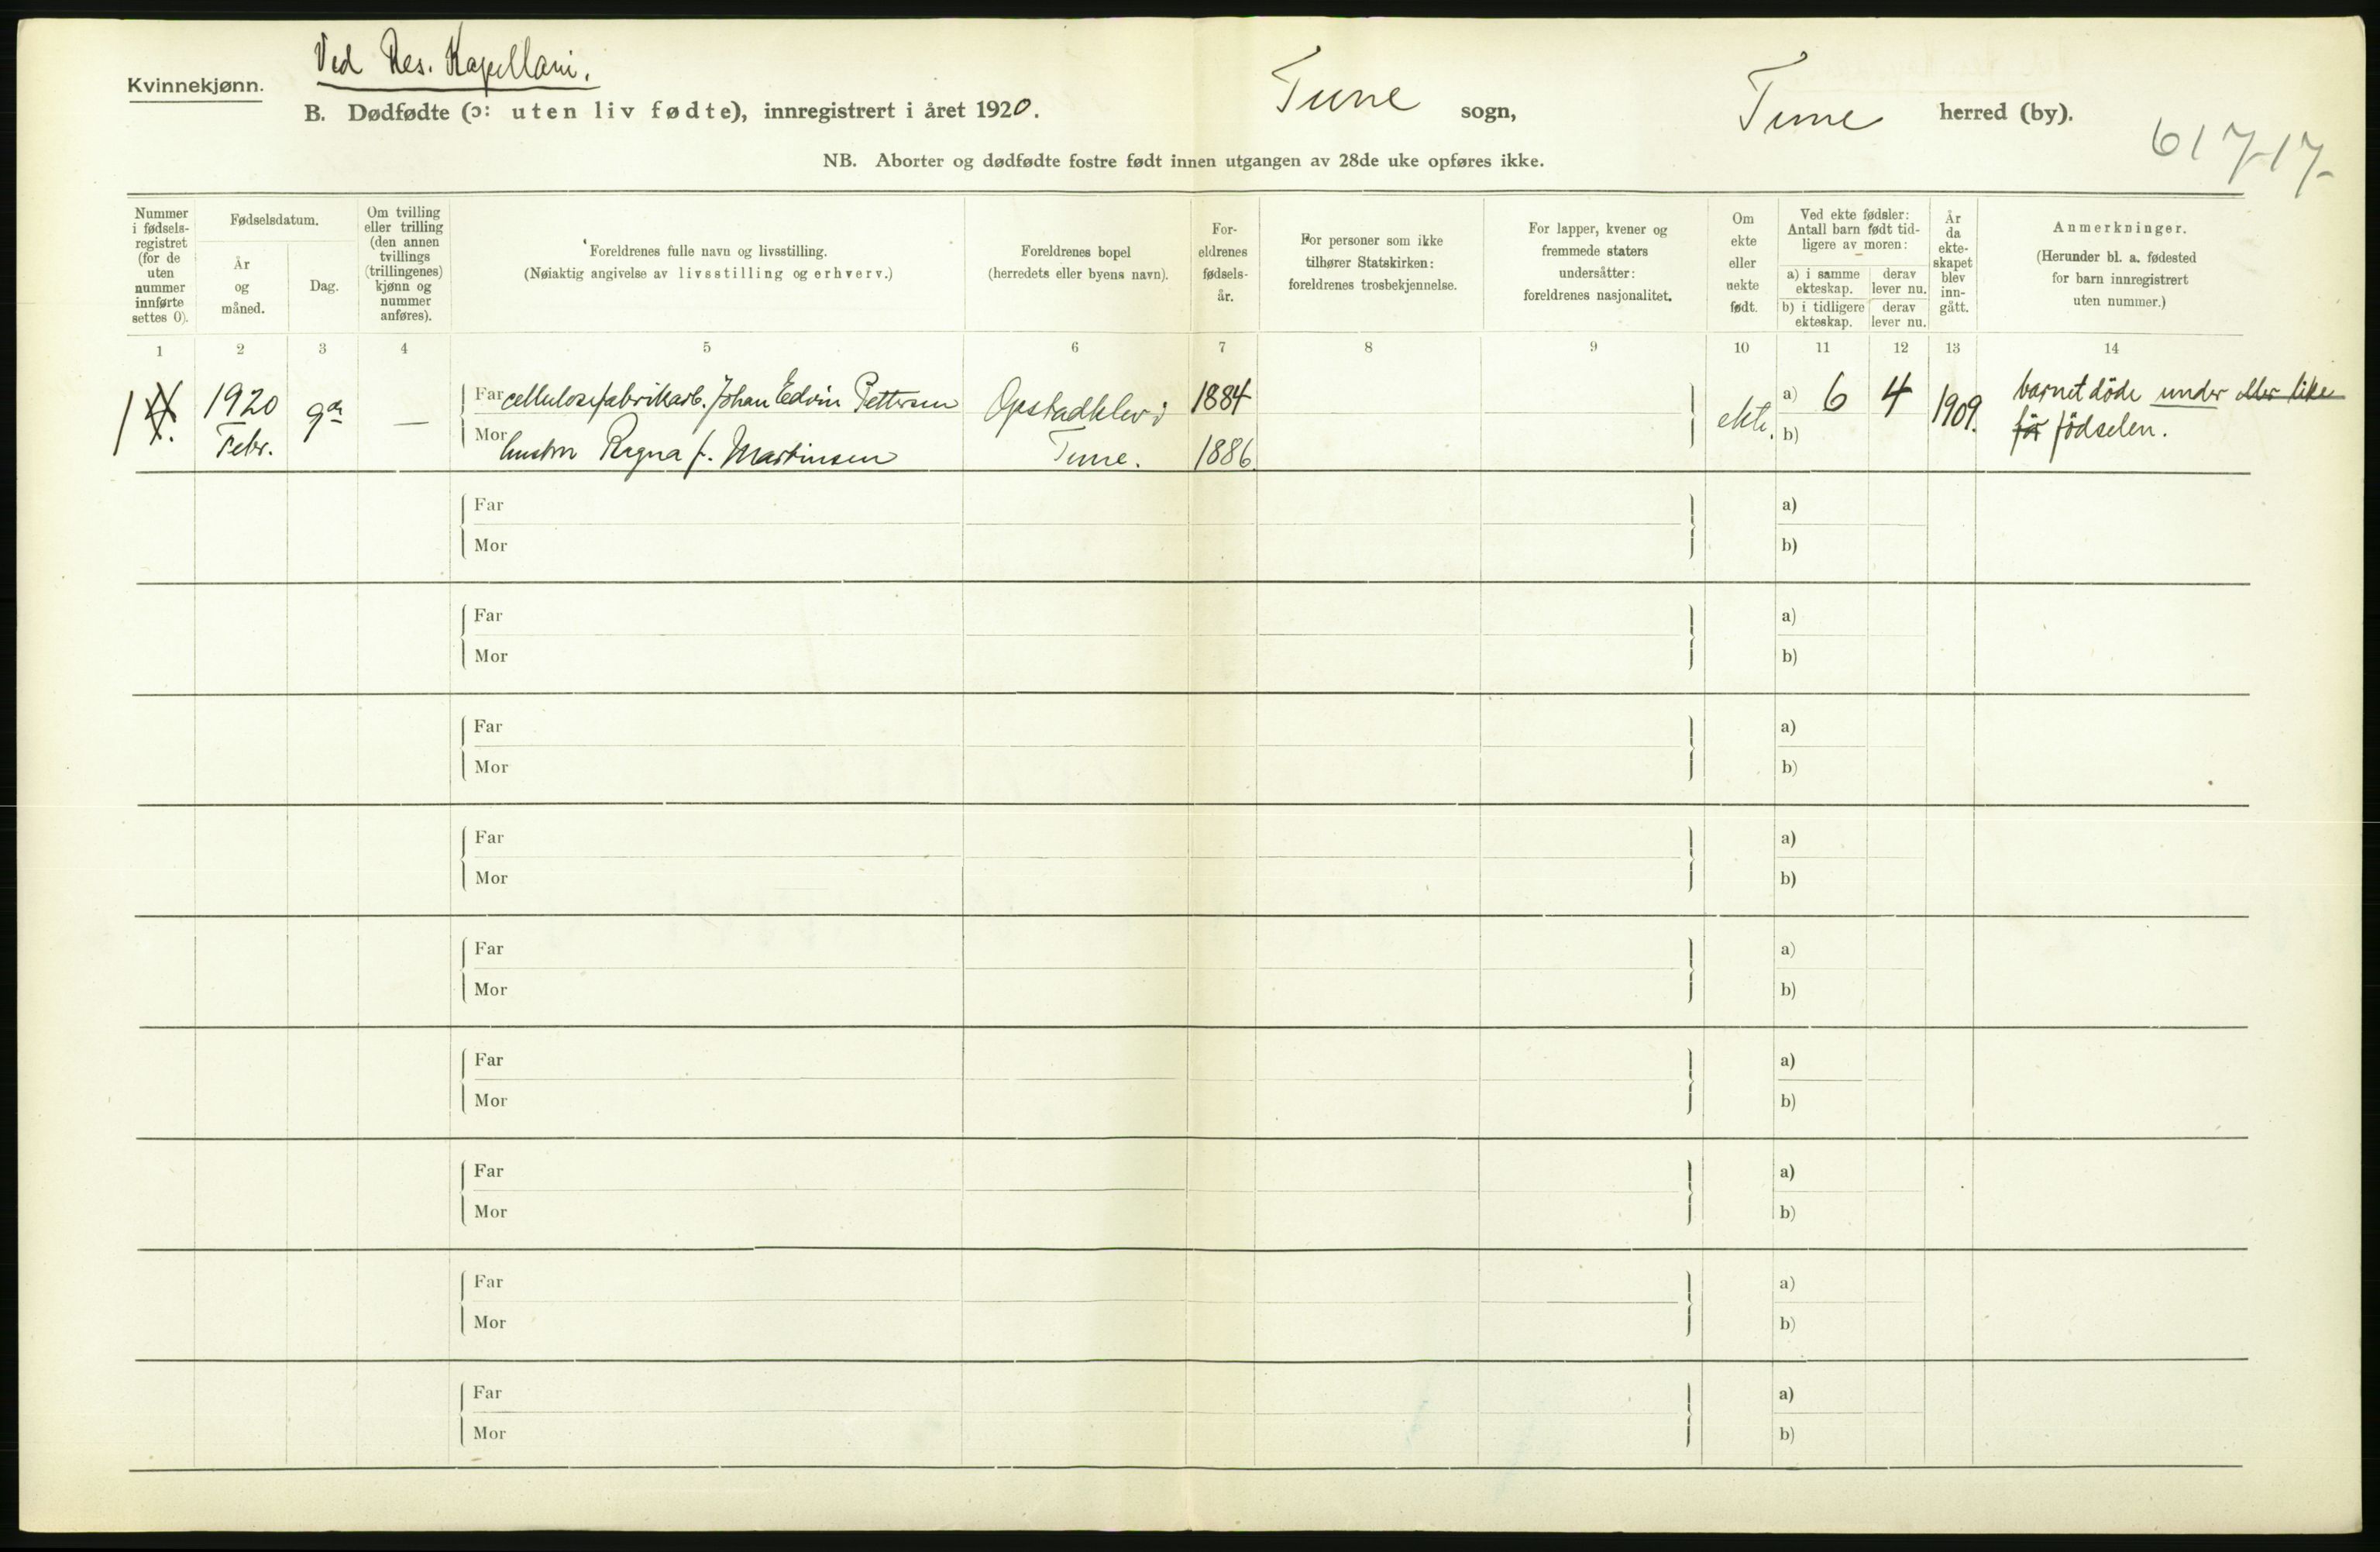 Kvinnekjønn.
Ved Res. Kapellani.
B. Dødfødte (ɔ: uten liv fødte), innregistrert i året 1920.
Tune sogn,
Tune herred (by).
61717-
NB. Aborter og dødfødte fostre født innen utgangen av 28de uke opføres ikke.
Nummer
i fødsels-
registret
(for de
uten
nummer
innførte
settes 0).
Fødselsdatum.
År
og
måned.
Dag.
Om tvilling
eller trilling
(den annen
tvillings
(trillingenes)
kjønn og
nummer
anføres).
Foreldrenes fulle navn og livsstilling.
(Nøiaktig angivelse av livsstilling og erhverv.)
Foreldrenes bopel
(herredets eller byens navn).
For-
eldrenes
fødsels-
år.
For personer som ikke
tilhører Statskirken:
foreldrenes trosbekjennelse.
For lapper, kvener og
fremmede staters
undersåtter:
foreldrenes nasjonalitet.
Om
ekte
eller
uekte
født.
Ved ekte fødsler:
Antall barn født tid-
ligere av moren:
a) i samme
ekteskap.
derav
lever nu.
b) i tidligere
ekteskap.
derav
lever nu.
År
da
ekte-
skapet
blev
inn-
gått.
Anmerkninger.
(Herunder bl. a. fødested
for barn innregistrert
uten nummer.)
1 2 3 4 5 6 7 8 9 10 11 12 13 14
1 1920 Febr. 9de —
Far cellulosefabrikarb. Johan Edvin Pettersen
Mor hustru Ragna f. Martinsen
Opstadklev i
Tune.
1884
1886
ekte.
a) 6 4
b)
1909.
barnet döde under eller like
för födselen.
Far a)
Mor b)
Far a)
Mor b)
Far a)
Mor b)
Far a)
Mor b)
Far a)
Mor b)
Far a)
Mor b)
Far a)
Mor b)
Far a)
Mor b)
Far a)
Mor b)